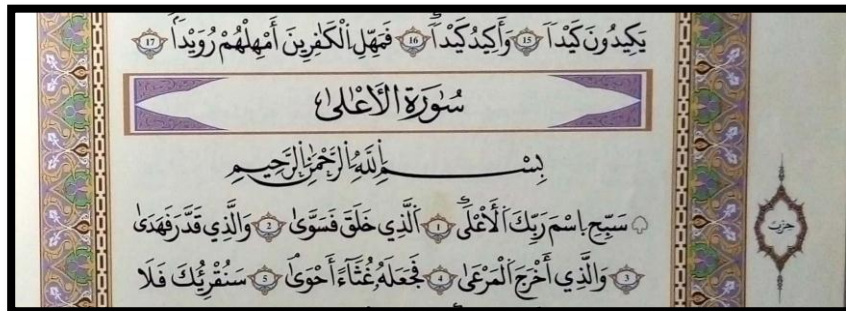 يَكِيدُونَ كَيْدًا 15 وَأَكِيدُ كَيْدًا 16 فَمَهِّلِ الْكَافِرِينَ أَمْهِلْهُمْ رُوَيْدًا 17
سُورَةُ الْأَعْلَىٰ
بِسْمِ اللَّهِ الرَّحْمَٰنِ الرَّحِيمِ
سَبِّحِ اسْمَ رَبِّكَ الْأَعْلَى 1 الَّذِي خَلَقَ فَسَوَّىٰ 2 وَالَّذِي قَدَّرَ فَهَدَىٰ
3 وَالَّذِي أَخْرَجَ الْمَرْعَىٰ 4 فَجَعَلَهُ غُثَاءً أَحْوَىٰ 5 سَنُقْرِئُكَ فَلَا
حزب